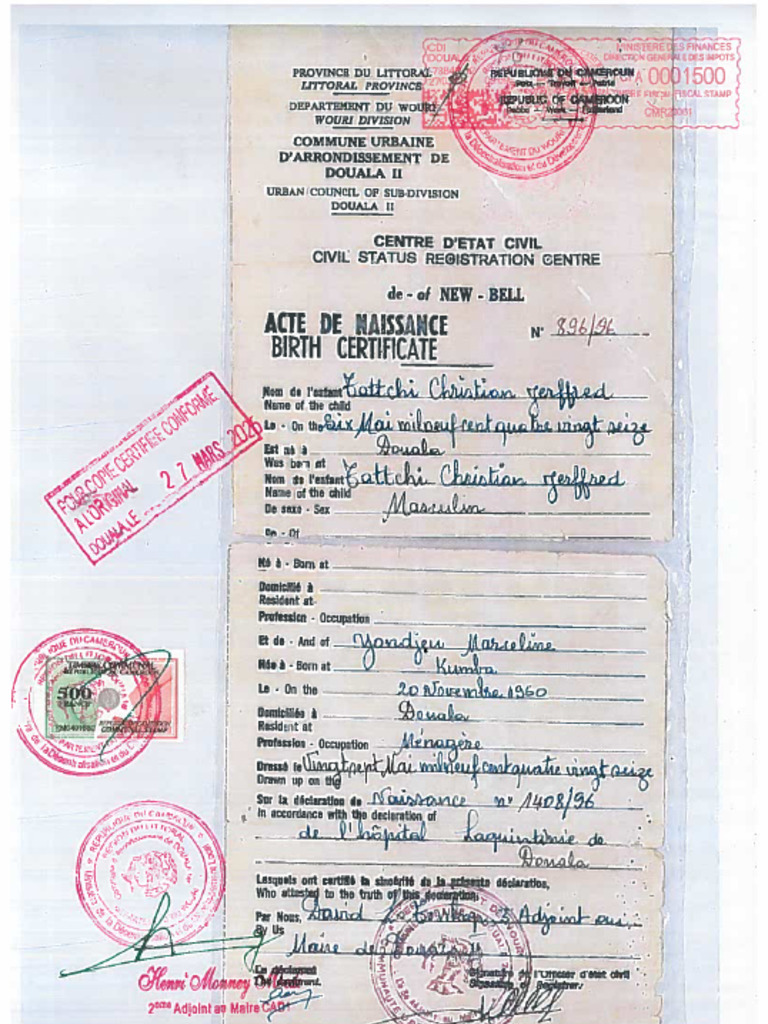 PROVINCE DU LITTORAL
LITTORAL PROVINCE
DEPARTEMENT DU WOURI
WOURI DIVISION
COMMUNE URBAINE
D'ARRONDISSEMENT DE
DOUALA II
URBAN COUNCIL OF SUB-DIVISION
DOUALA II
CDI
DOUALA
MINISTERE DES FINANCES
DIRECTION GENERALE DES IMPOTS
REPUBLIQUE DU CAMEROUN
Paix - Travail - Patrie
0001500
REPUBLIC OF CAMEROON
FISCAL STAMP
CENTRE D'ETAT CIVIL
CIVIL STATUS REGISTRATION CENTRE
de - of NEW - BELL
ACTE DE NAISSANCE
BIRTH CERTIFICATE
N° 896/96
Nom de l'enfant Tattchi Christian Jerffred
Name of the child
Le - On the Six Mai milneuf cent quatre vingt seize
Est né à Douala
Was born at
Nom de l'enfant Tattchi Christian Jerffred
Name of the child
De sexe - Sex Masculin
De - Of
POUR COPIE CERTIFIEE CONFORME
A L'ORIGINAL
DOUALA LE 27 MARS
Né à - Born at
Domicilié à
Resident at
Profession - Occupation
Et de - And of Yondjeu Marceline
Née à - Born at Kumba
Le - On the 20 Novembre 1960
Domiciliée à Douala
Resident at
Profession - Occupation Ménagère
Dressé le Vingt sept Mai milneuf cent quatre vingt seize
Drawn up on the
Sur la déclaration de Naissance n° 1408/96
In accordance with the declaration of
de l'hôpital Laquintinie de
Douala
TIMBRE COMMUNAL
500
FRANCS
COMMUNAL STAMP
Lesquels ont certifié la sincérité de la présente déclaration,
Who attested to the truth of this declaration
Par Nous, David
By Us
Adjoint au
Maire de
Le déclarant
Signature de l'Officier d'état civil
Signature of Registrar
Henri Monney
2ème Adjoint au Maire CAD